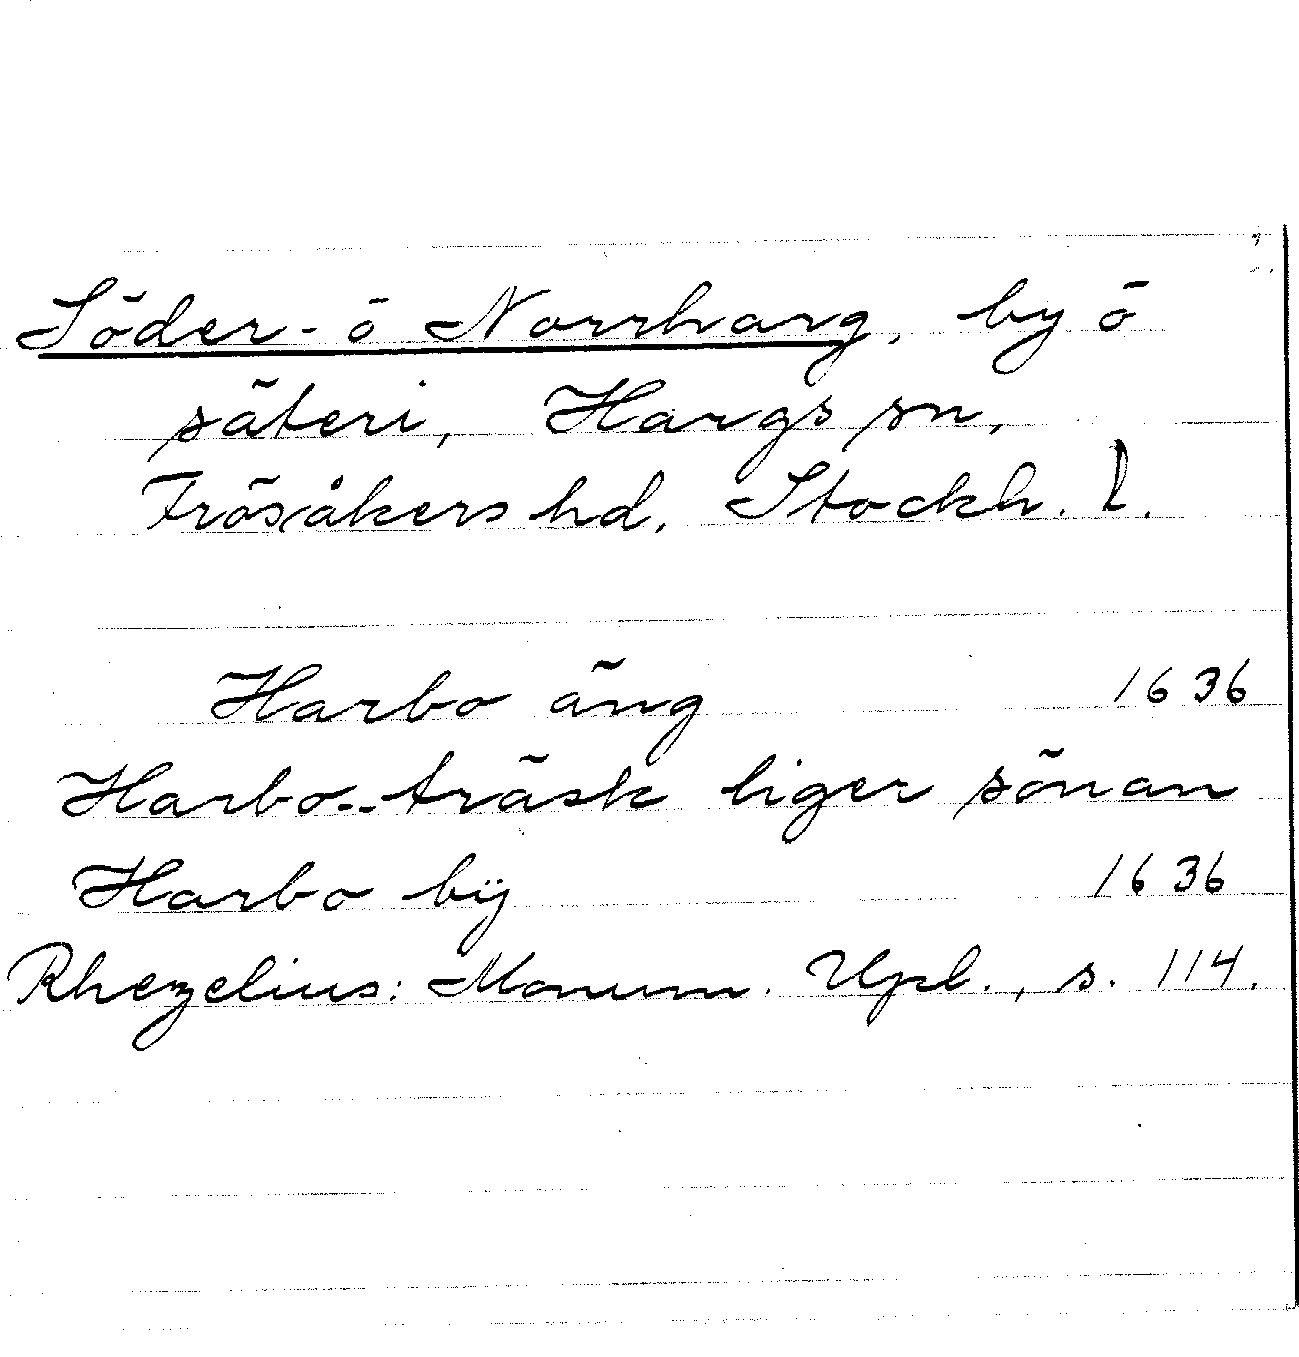 Söder- o Norrharg, by o
säteri, Hargs sn,
Frösåkers hd, Stockh. l.
Harbo äng 1636
Harbo-träsk liger sönan
Harbo bÿ 1636
Rhezelius: Monum. Upl., s. 114.